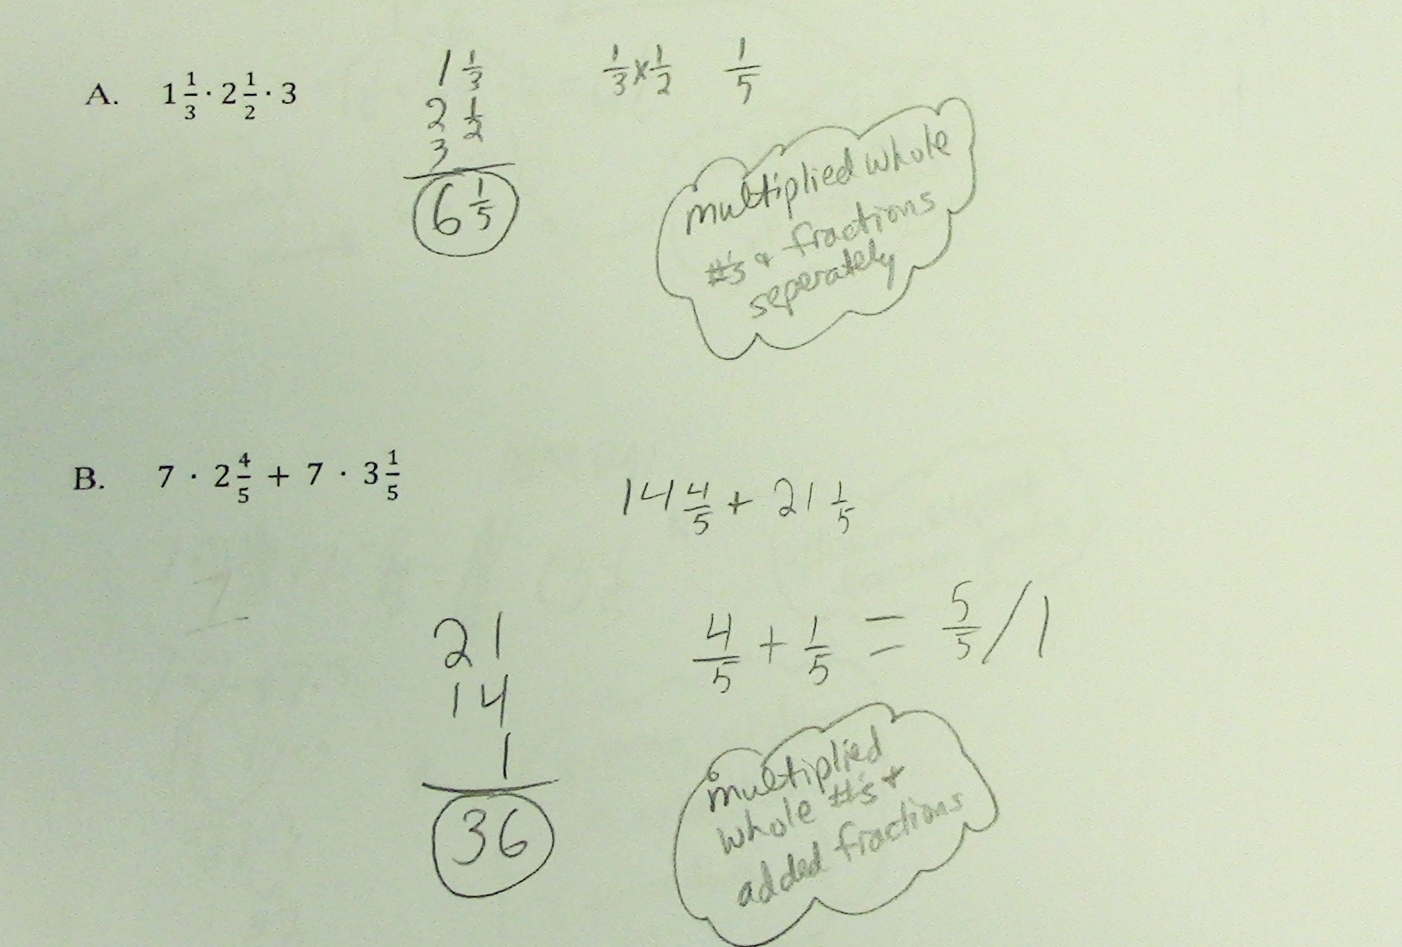 A. 1 1/3 · 2 1/2 · 3
1 1/3
2 1/2
3
6 1/5
1/3 x 1/2 1/5
multiplied whole
#'s + fractions
seperately
B. 7 · 2 4/5 + 7 · 3 1/5
14 4/5 + 21 1/5
21
14
1
36
4/5 + 1/5 = 5/5 / 1
multiplied
whole #'s +
added fractions